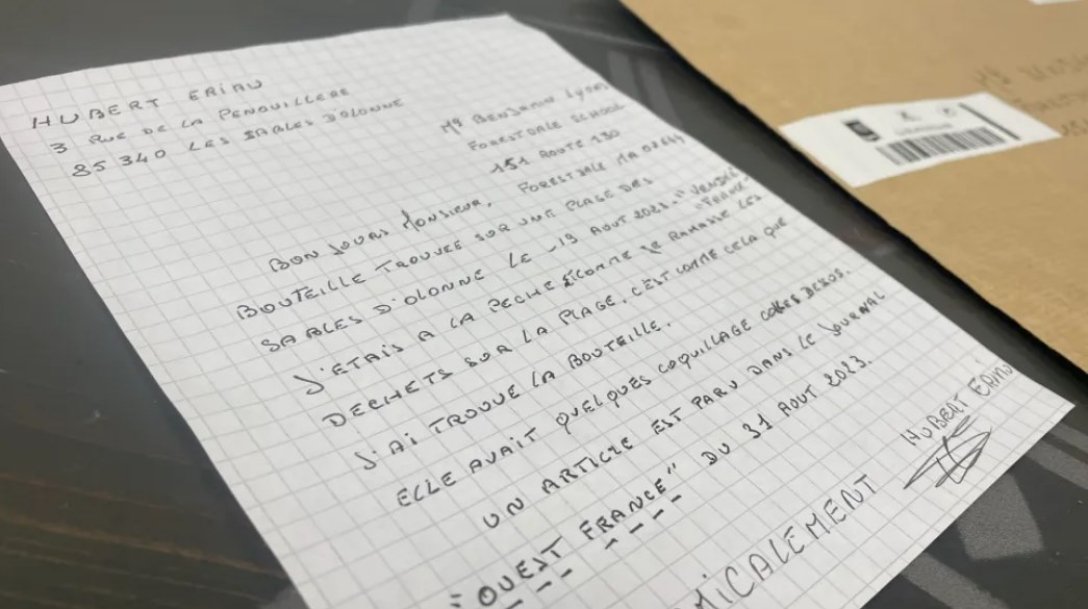 HUBERT ERIAU
3 RUE DE LA PENOUILLERE
85 340 LES SABLES D'OLONNE
Mr BENJAMIN LYONS
FORESTDALE SCHOOL
151 ROUTE 130
FORESTDALE MA 02644
BONJOURS MONSIEUR,
BOUTEILLE TROUVEE SUR UNE PLAGE DES
SABLES D'OLONNE LE 19 AOUT 2023. "VENDÉE" "FRANCE"
J'ETAIS A LA PECHE ET COMME JE RAMASSE LES
DECHETS SUR LA PLAGE, C'EST COMME CELA QUE
J'AI TROUVE LA BOUTEILLE.
ELLE AVAIT QUELQUES COQUILLAGE COLLES DESSUS.
UN ARTICLE EST PARU DANS LE JOURNAL
"OUEST FRANCE" DU 31 AOUT 2023.
HUBERT ERIAU
AMICALEMENT